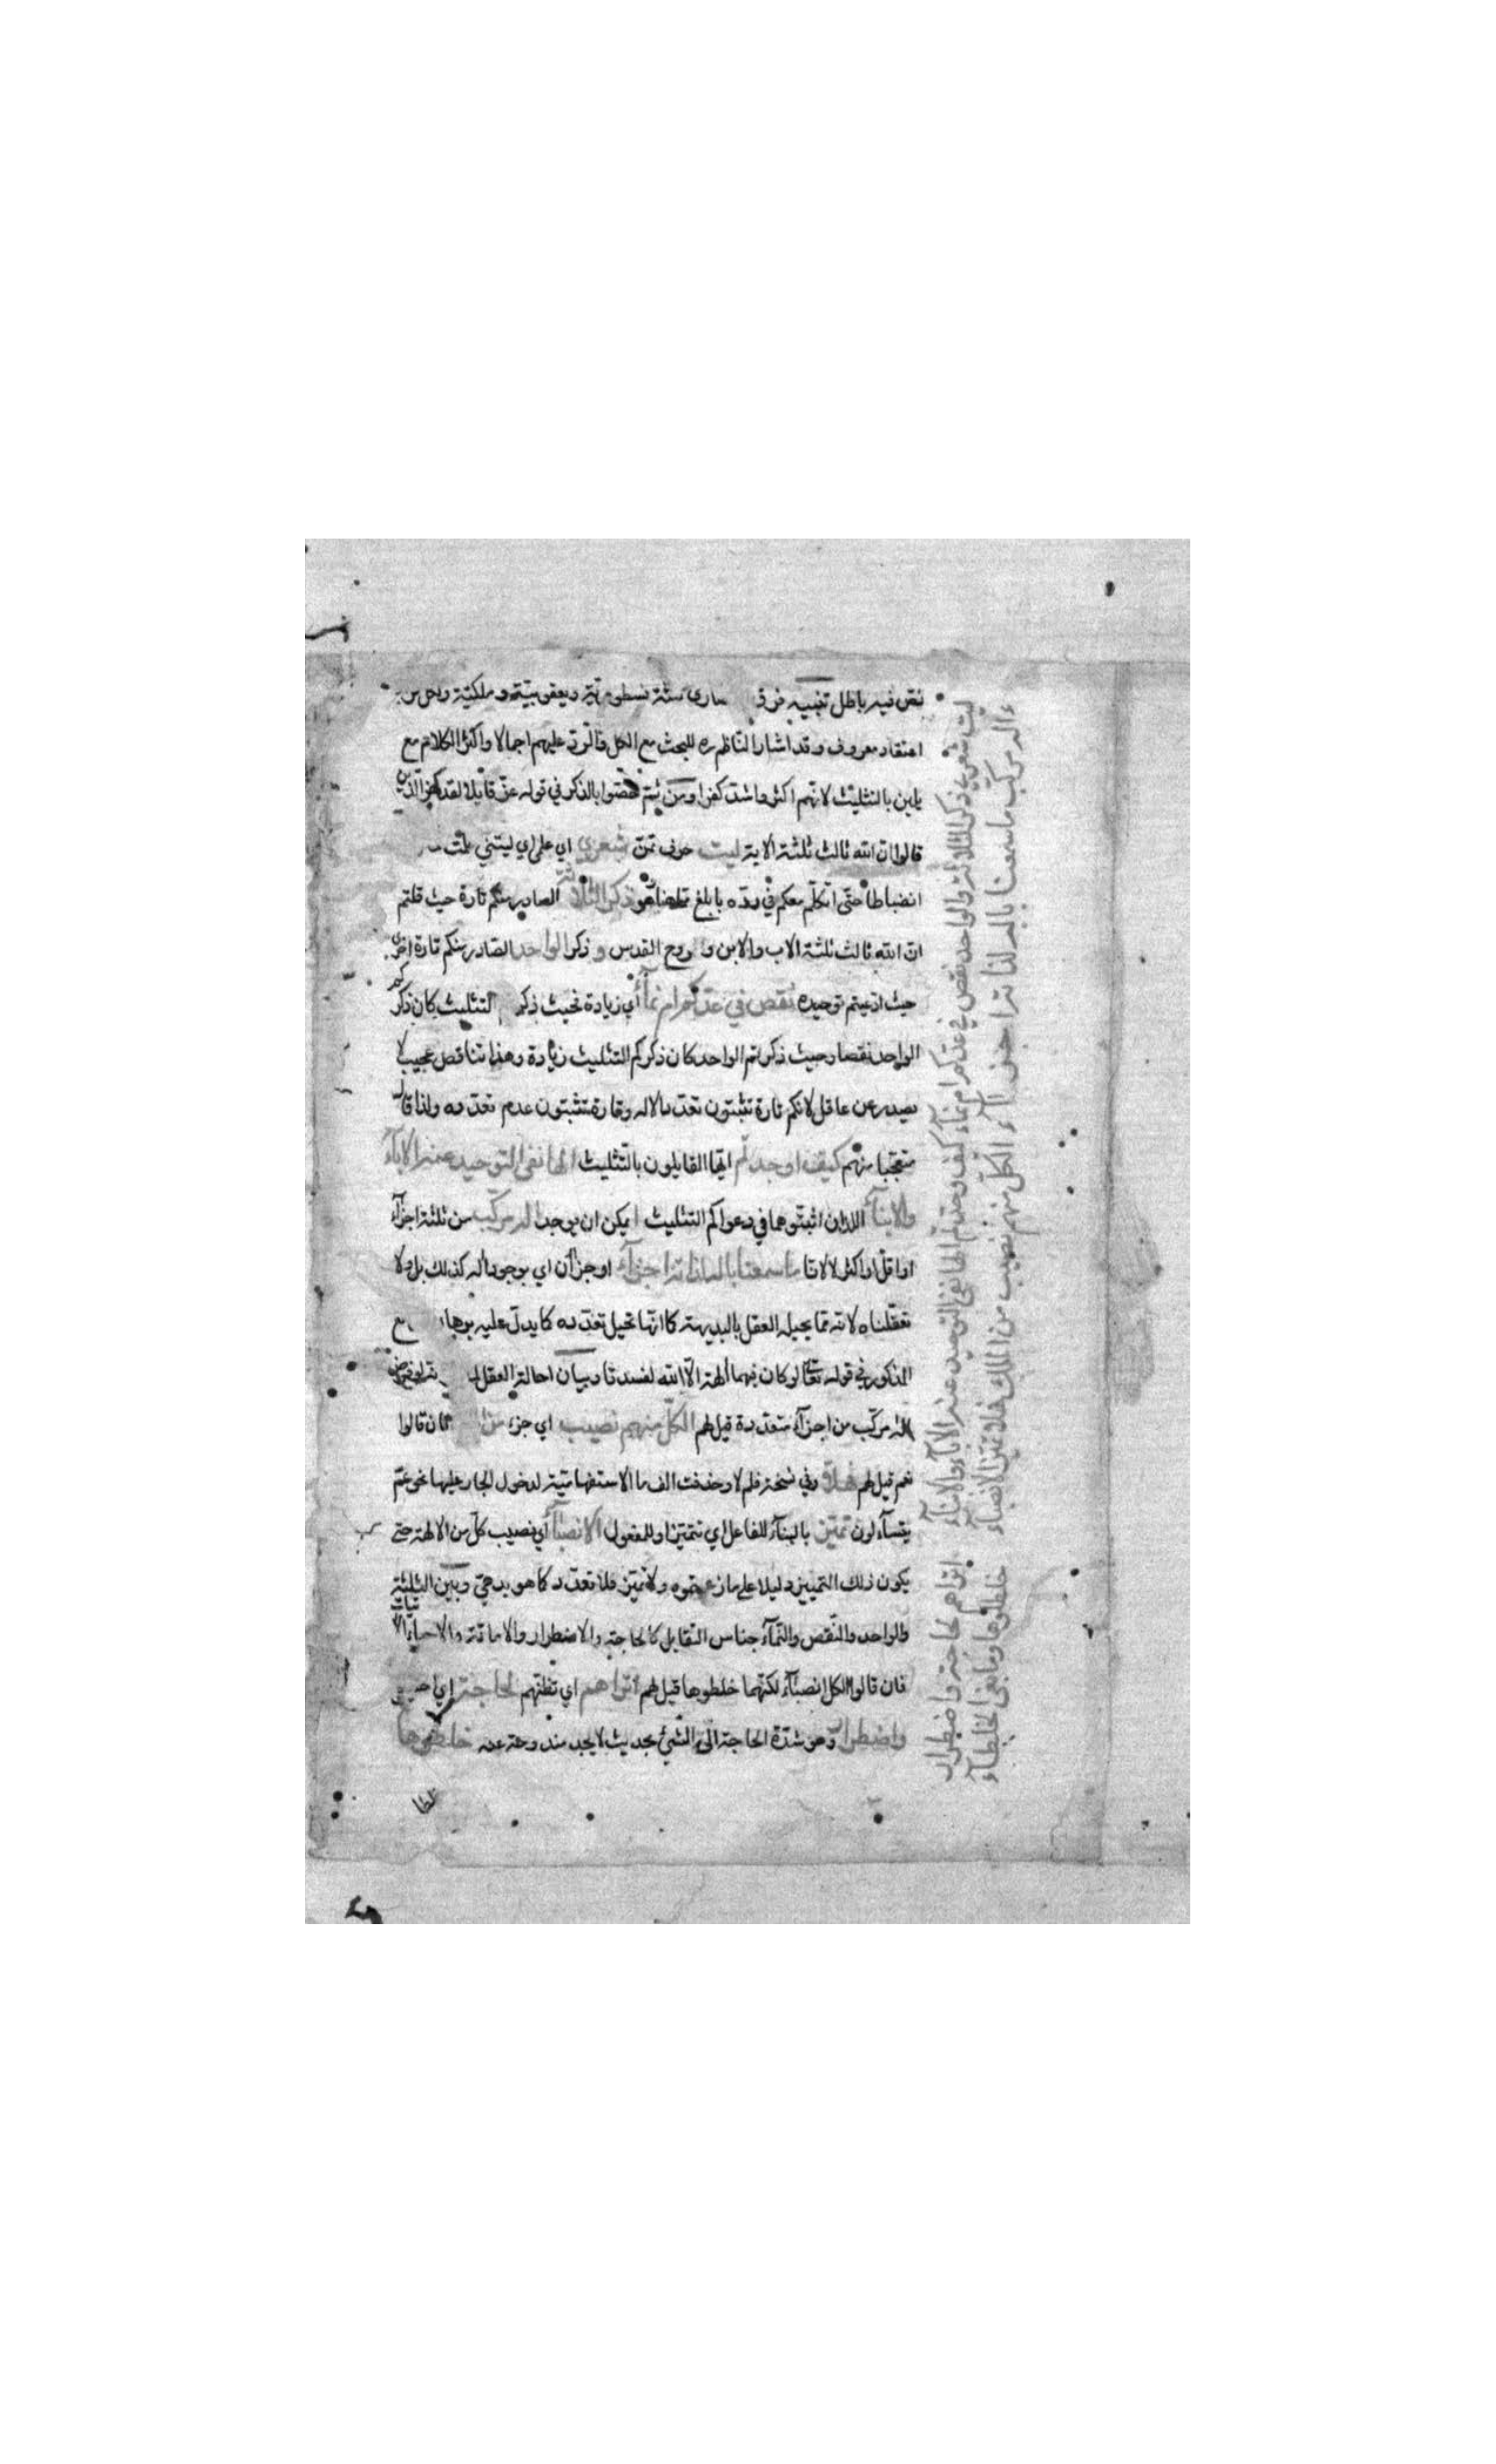 نص فيه باطل تنبيه فرق النصارى ستة نسطورية ويعقوبية وملكية
اعتقاد معروف وقد اشار الناظم ره للبحث مع الكل والرد عليهم اجمالا واكثر الكلام مع
يلين بالتثليث لانهم اكثر واشد كفرا ومن ثم خصوا بالذكر في قوله عز قائلا لقد كفر الذين
قالوا ان الله ثالث ثلثة الاية ليت حرف تمن شعري اي علمي اي ليتني علمت
انضباطا حتى اتكلم معكم في رده بابلغ ذكر الثلاثة الصادر منكم تارة حيث قلتم
ان الله ثالث ثلثة الاب والابن والروح القدس و ذكر الواحد الصادر منكم تارة اخرى
حيث ادعيتم توحيده نقص في عدكم ام نمآء اي زيادة بحيث ذكركم التثليث كان ذكر
الواحد نقصا وحيث ذكرتم الواحد كان ذكركم التثليث زيادة وهذا تناقض عجيب لا
يصدر عن عاقل لانكم تارة تثبتون تعدد الاله وتارة تثبتون عدم تعدده ولذا قال
متعجبا منهم كيف اوجدتم ايها القايلون بالتثليث الها نفى التوحيد عنه الابآء
والابنآء اللذان اثبتوهما في دعواكم التثليث ايمكن ان يوجد اله مركب من ثلثة اجزآء
او اقل او اكثر لا لانا ما سمعنا باله لذاته اجزآء او جزآن اي بوجود اله كذلك بل ولا
تعقلناه لانه مما يحيله العقل بالبديهة كما انها تحيل تعدده كما يدل عليه برهان
المذكور في قوله تعالى لو كان فيهما الهة الا الله لفسدتا وبيان احالة العقل
اله مركب من اجزآء متعددة قيل لهم الكل منهم نصيب اي جزء من الملك فان قالوا
نعم قيل لهم فهلا وفي نسخة فلم لا وحذفت الف ما الاستفهامية لدخول الجار عليها نحو عم
يتسآءلون تميز بالبنآء للفاعل اي تتميز او للمفعول الانصبآء اي نصيب كل من الالهة حتى
يكون ذلك التمييز دليلا على ما زعمتوه ولا تميز فلا تعدد كما هو بديهي وبين الثلثة
والواحد والنقص والنمآء جناس التقابل كالحاجة والاضطرار والاماتة والاحياء الاتيات
فان قالوا للكل انصبآء لكنهما خلطوها قيل لهم اتراهم اي تظنهم لحاجة اي
واضطرار وهو شدة الحاجة الى الشيئ بحديث لا يجد مندوحة عنه خلطوها
ليت شعري ذكر الثلاثة والواحد نقص في عدكم ام نمآء كيف وحدتم الها نفى التوحيد عنه الابآء والابنآء
ءاله مركب ما سمعنا باله لذاته اجزآء الكل منهم نصيب من الملك فهلا تميز الانصبآء
اتراهم لحاجة واضطرار
خلطوها وما بغى الخلطآء